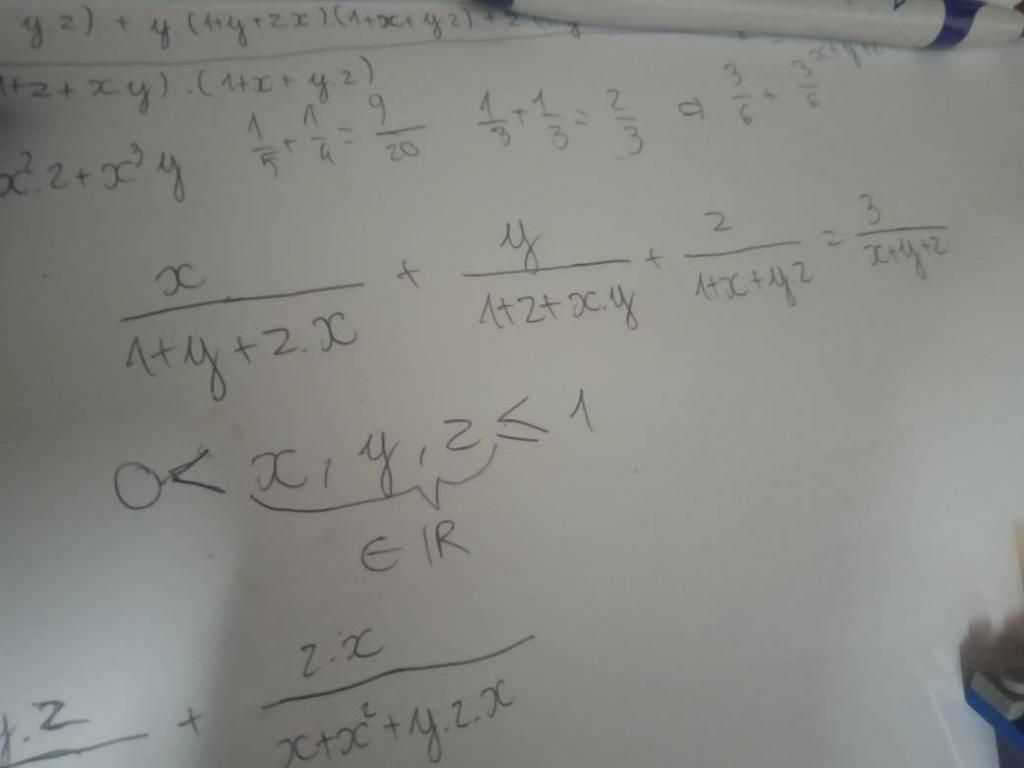 y.z) + y.(1+y+zx)(1+x+y.z) + z
1+z+x.y).(1+x+y.z)
x².z+x³.y 1/5+1/4=9/20 1/3+1/3=2/3 3/6+3/6 x+y+
x/(1+y+z.x) + y/(1+z+x.y) + z/(1+x+y.z) = 3/(x+y+z)
0 < x, y, z ≤ 1
∈ ℝ
y.z + z.x/(x+x²+y.z.x)